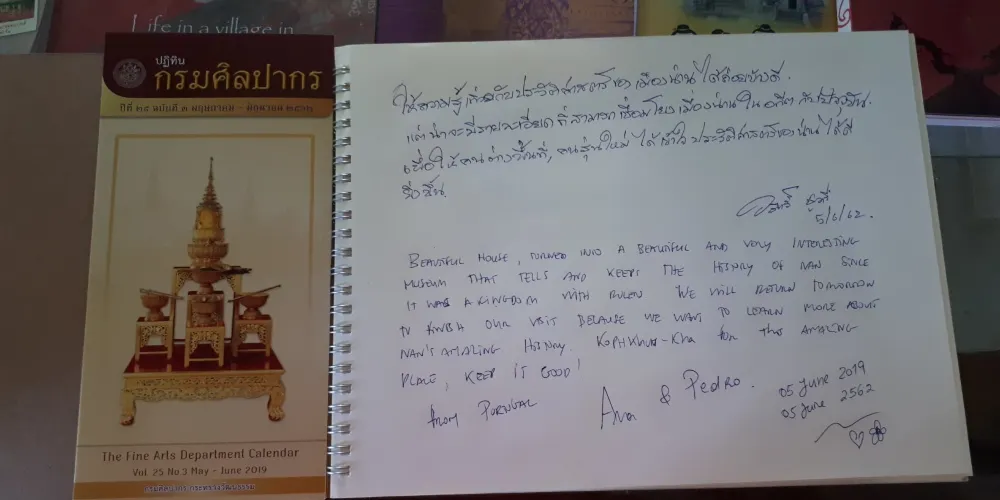 Life in a village in
ปฏิทิน
กรมศิลปากร
ปีที่ ๒๕ ฉบับที่ ๓ พฤษภาคม - มิถุนายน ๒๕๖๒
The Fine Arts Department Calendar
Vol. 25 No 3 May - June 2019
กรมศิลปากร กระทรวงวัฒนธรรม
ให้ความรู้เกี่ยวกับประวัติศาสตร์ของเมืองน่านได้
แต่น่าจะมีรายละเอียดที่สามารถเชื่อมโยงเมืองน่านในอดีตกับปัจจุบัน
เพื่อให้คนต่างพื้นที่, คนรุ่นใหม่ ได้เข้าใจประวัติศาสตร์ของน่านได้ดี
ยิ่งขึ้น
5/6/62.
BEAUTIFUL HOUSE, TURNED INTO A BEAUTIFUL AND VERY INTERESTING
MUSEUM THAT TELLS AND KEEPS THE HISTORY OF NAN SINCE
IT WAS A KINGDOM WITH RULERS WE WILL RETURN TOMORROW
TO FINISH OUR VISIT BECAUSE WE WANT TO LEARN MORE ABOUT
NAN'S AMAZING HISTORY. KOPHKHUN-KHA FOR THIS AMAZING
PLACE, KEEP IT GOOD!
from PORTUGAL
Ana & Pedro.
05 June 2019
05 June 2562